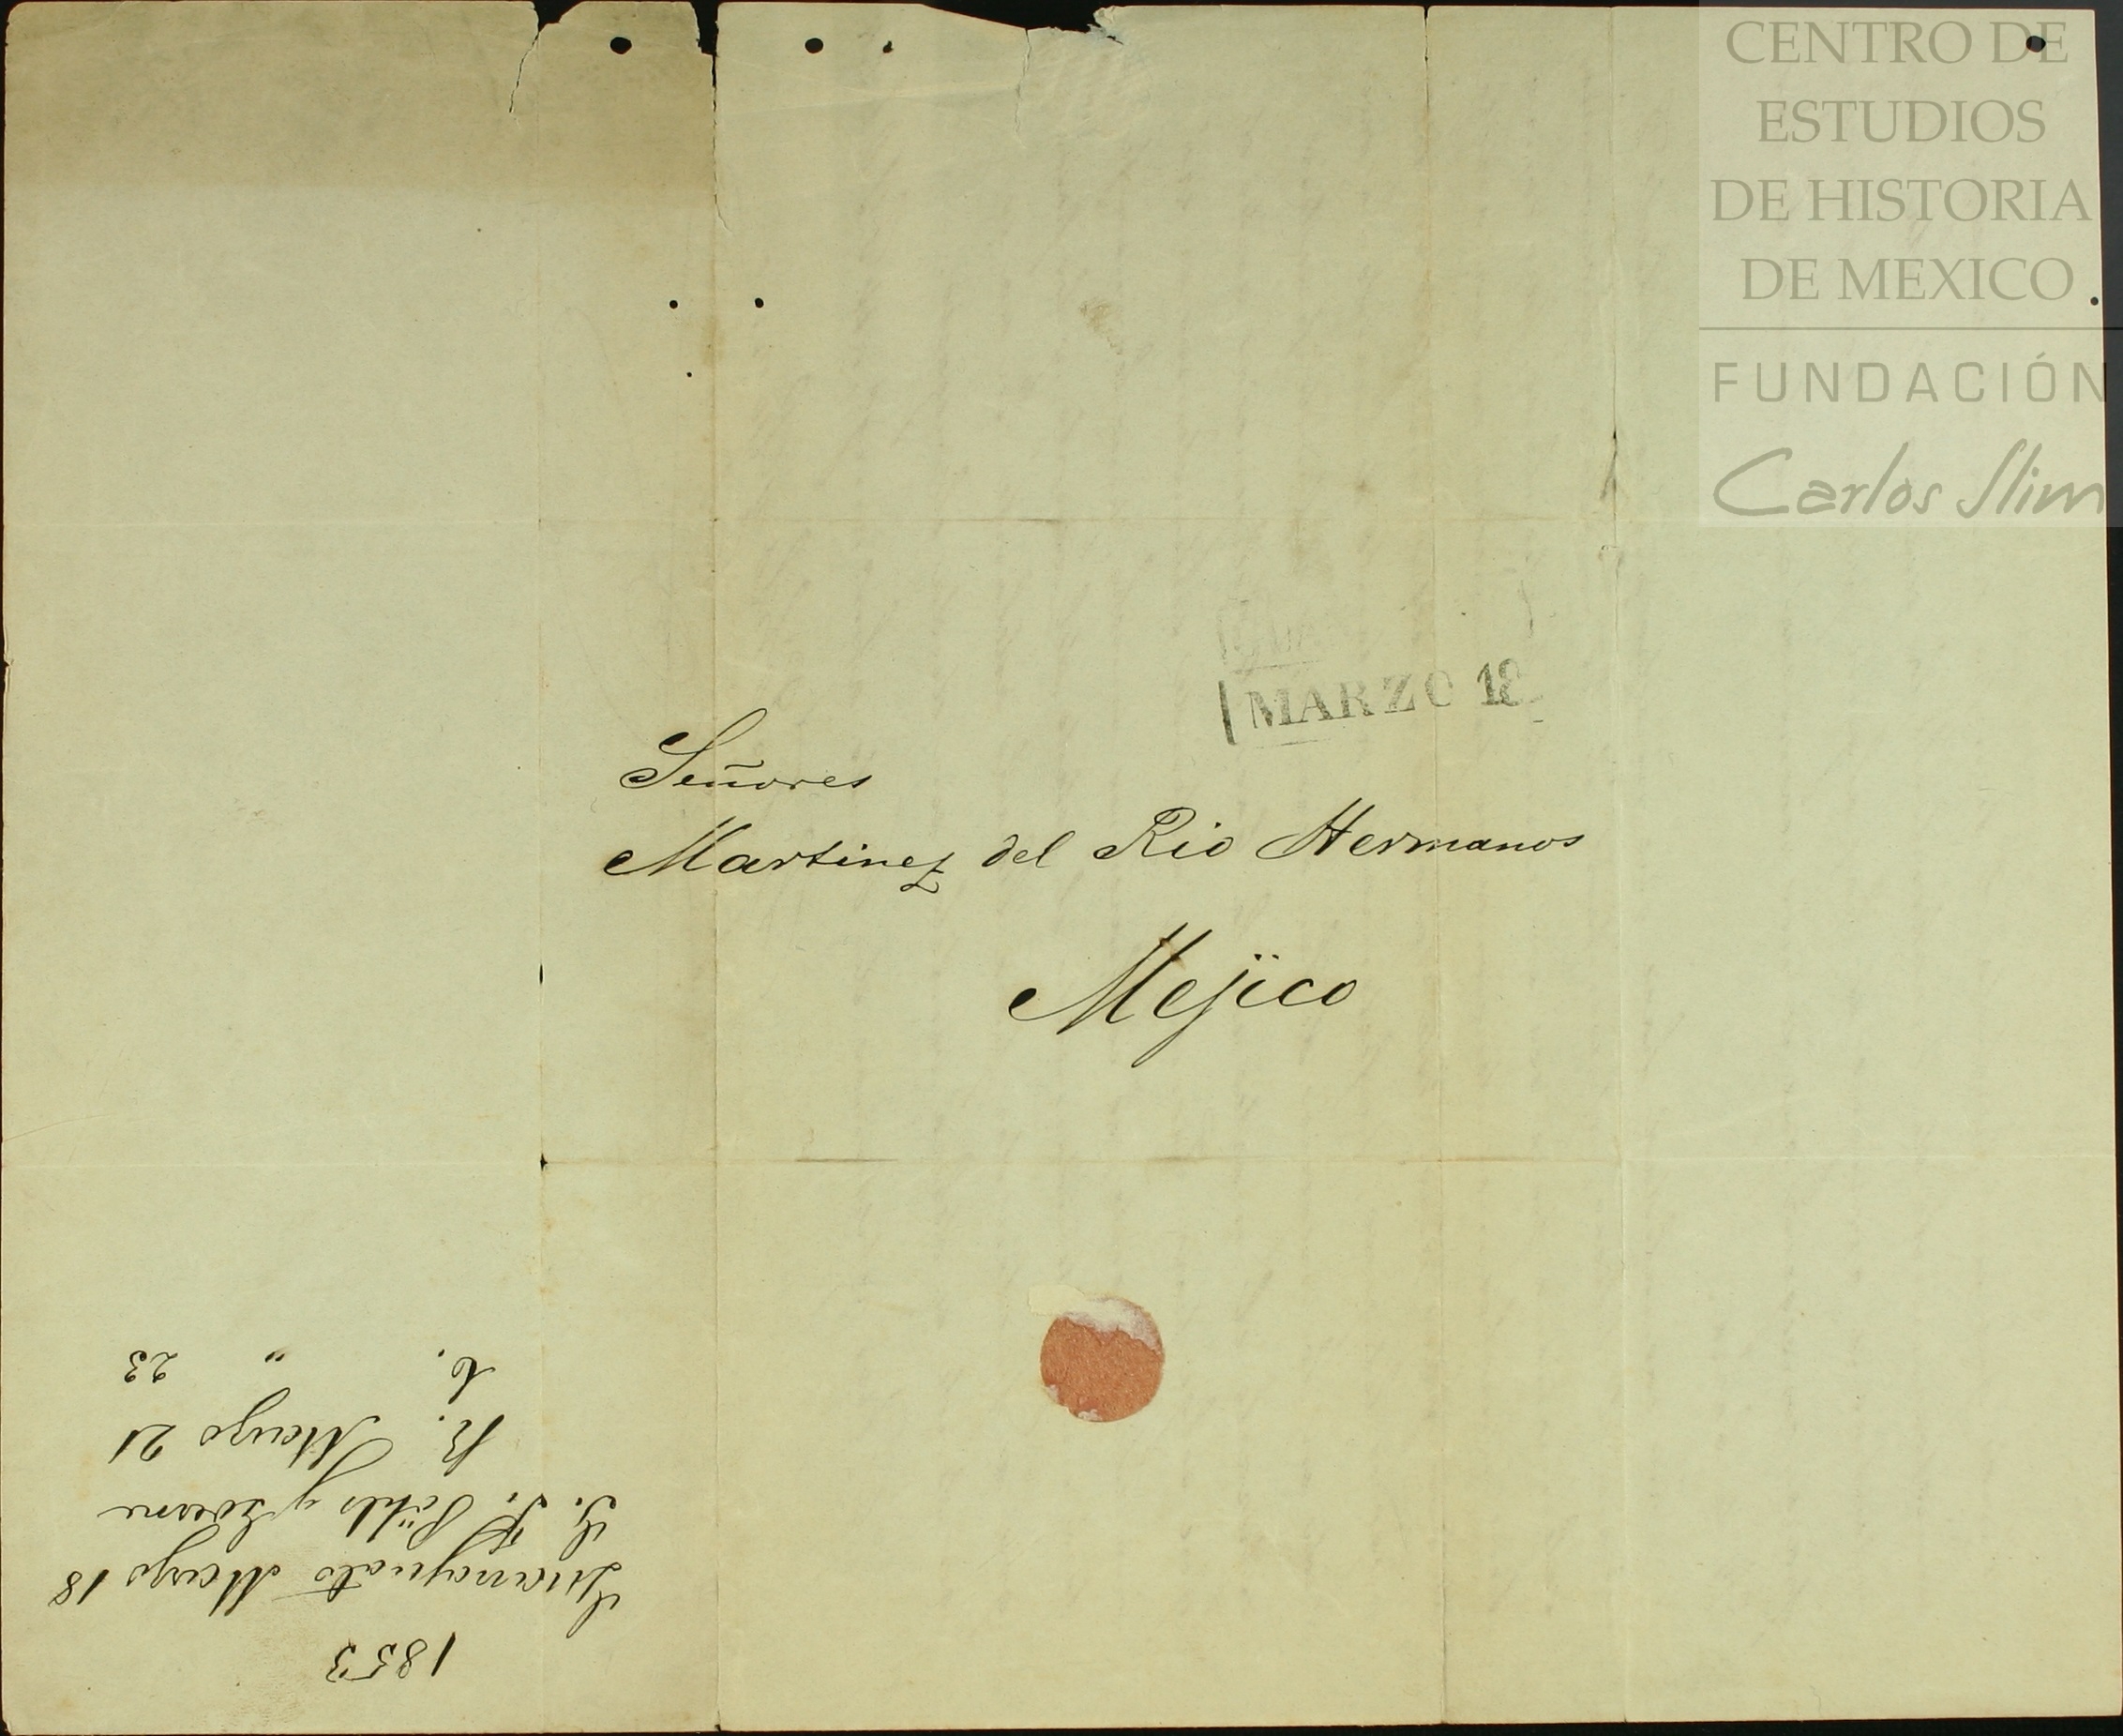 CENTRO DE
ESTUDIOS
DE HISTORIA
DE MEXICO
FUNDACIÓN
Carlos Slim
MARZO 18
Señores
Martinez del Rio Hermanos
Mejico
1853
Guanajuato Marzo 18
G. F.
R. Marzo 21
C. " 23